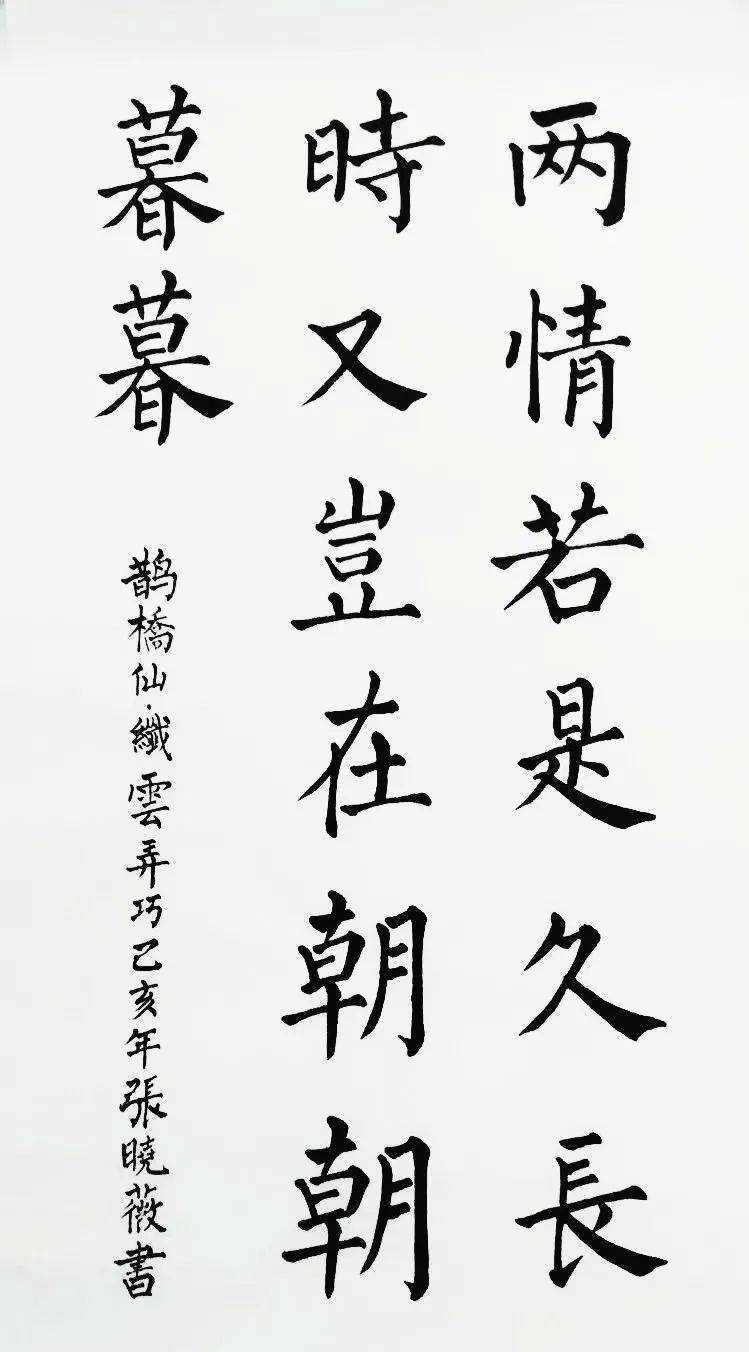 两情若是久長
時又豈在朝朝
暮暮
鹊橋仙·纖雲弄巧己亥年張曉薇书